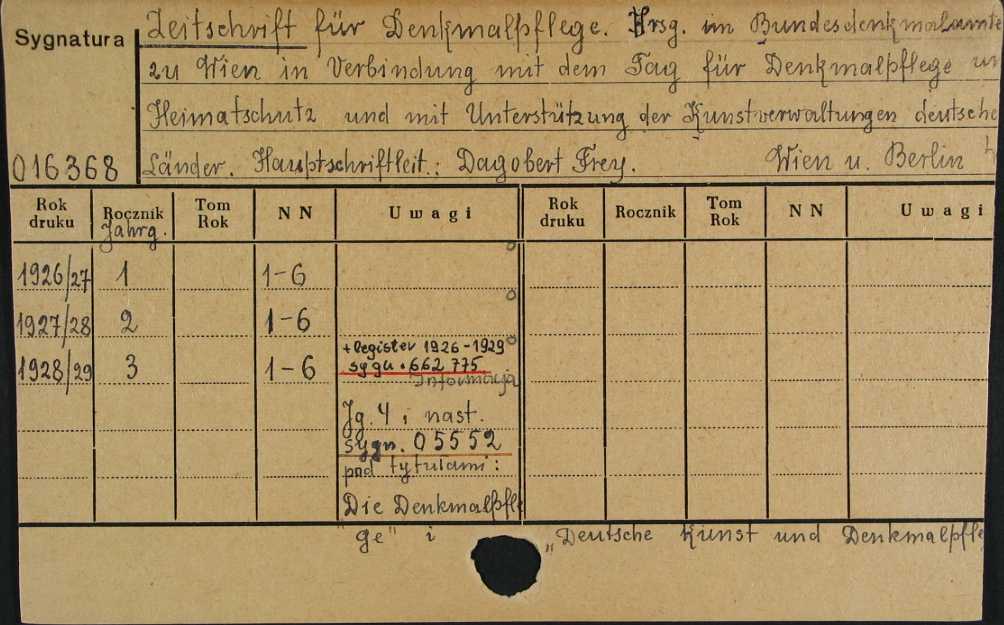 Sygnatura
Zeitschrift für Denkmalpflege. Hrsg. im Bundesdenkmalamte
zu Wien in Verbindung mit dem Tag für Denkmalpflege un
Heimatschutz und mit Unterstützung der Kunstverwaltungen deutsche
016368 Länder. Hauptschriftleit.: Dagobert Frey. Wien u. Berlin
Rok druku Rocznik Jahrg. Tom Rok NN Uwagi Rok druku Rocznik Tom Rok NN Uwagi
1926/27 1 1-6
1927/28 2 1-6
+ register 1926-1929
1928/29 3 1-6 sygn. 662 775
Informacja
Jg. 4 i nast.
sygn. 05552
pod tytułami:
Die Denkmalpfle
ge" i „Deutsche Kunst und Denkmalpfle